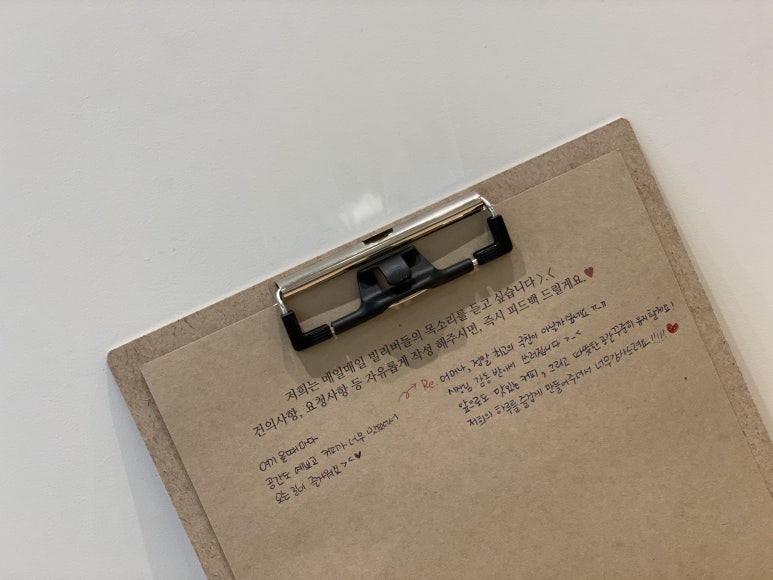 저희는 매일매일 빌리버들의 목소리를 듣고 싶습니다 >.<
건의사항, 요청사항 등 자유롭게 작성 해주시면, 즉시 피드백 드릴게요.♥
여기 올때마다
공간도 예쁘고 커피가 너무 맛있어서
오는 길이 즐거워요 > < ♥
Re. 어머나, 정말 최고의 극찬이 아닐까 싶네요 ㅠㅠ
감동 받아써 쓰러집니다 > <
앞으로도 맛있는 커피, 그리고 따뜻한 공간 꾸준히 유지할게요!
저희의 하루를 즐겁게 만들어주셔서 너무 감사드려요!!!!! ♥